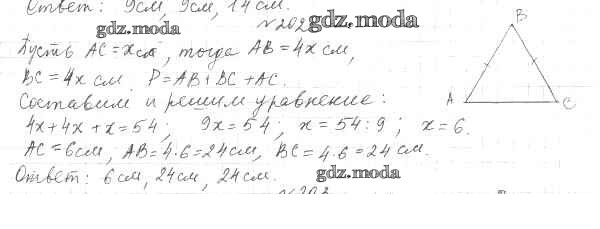 Ответ: 9см, 9см, 14 см.
gdz.moda №202 gdz.moda
B
Пусть AC = x см, тогда AB = 4x см,
BC = 4x см. P = AB + BC + AC.
Составим и решим уравнение:
A C
4x + 4x + x = 54; 9x = 54; x = 54 : 9; x = 6.
AC = 6см, AB = 4·6 = 24см, BC = 4·6 = 24 см.
Ответ: 6 см, 24 см, 24 см. gdz.moda
№203